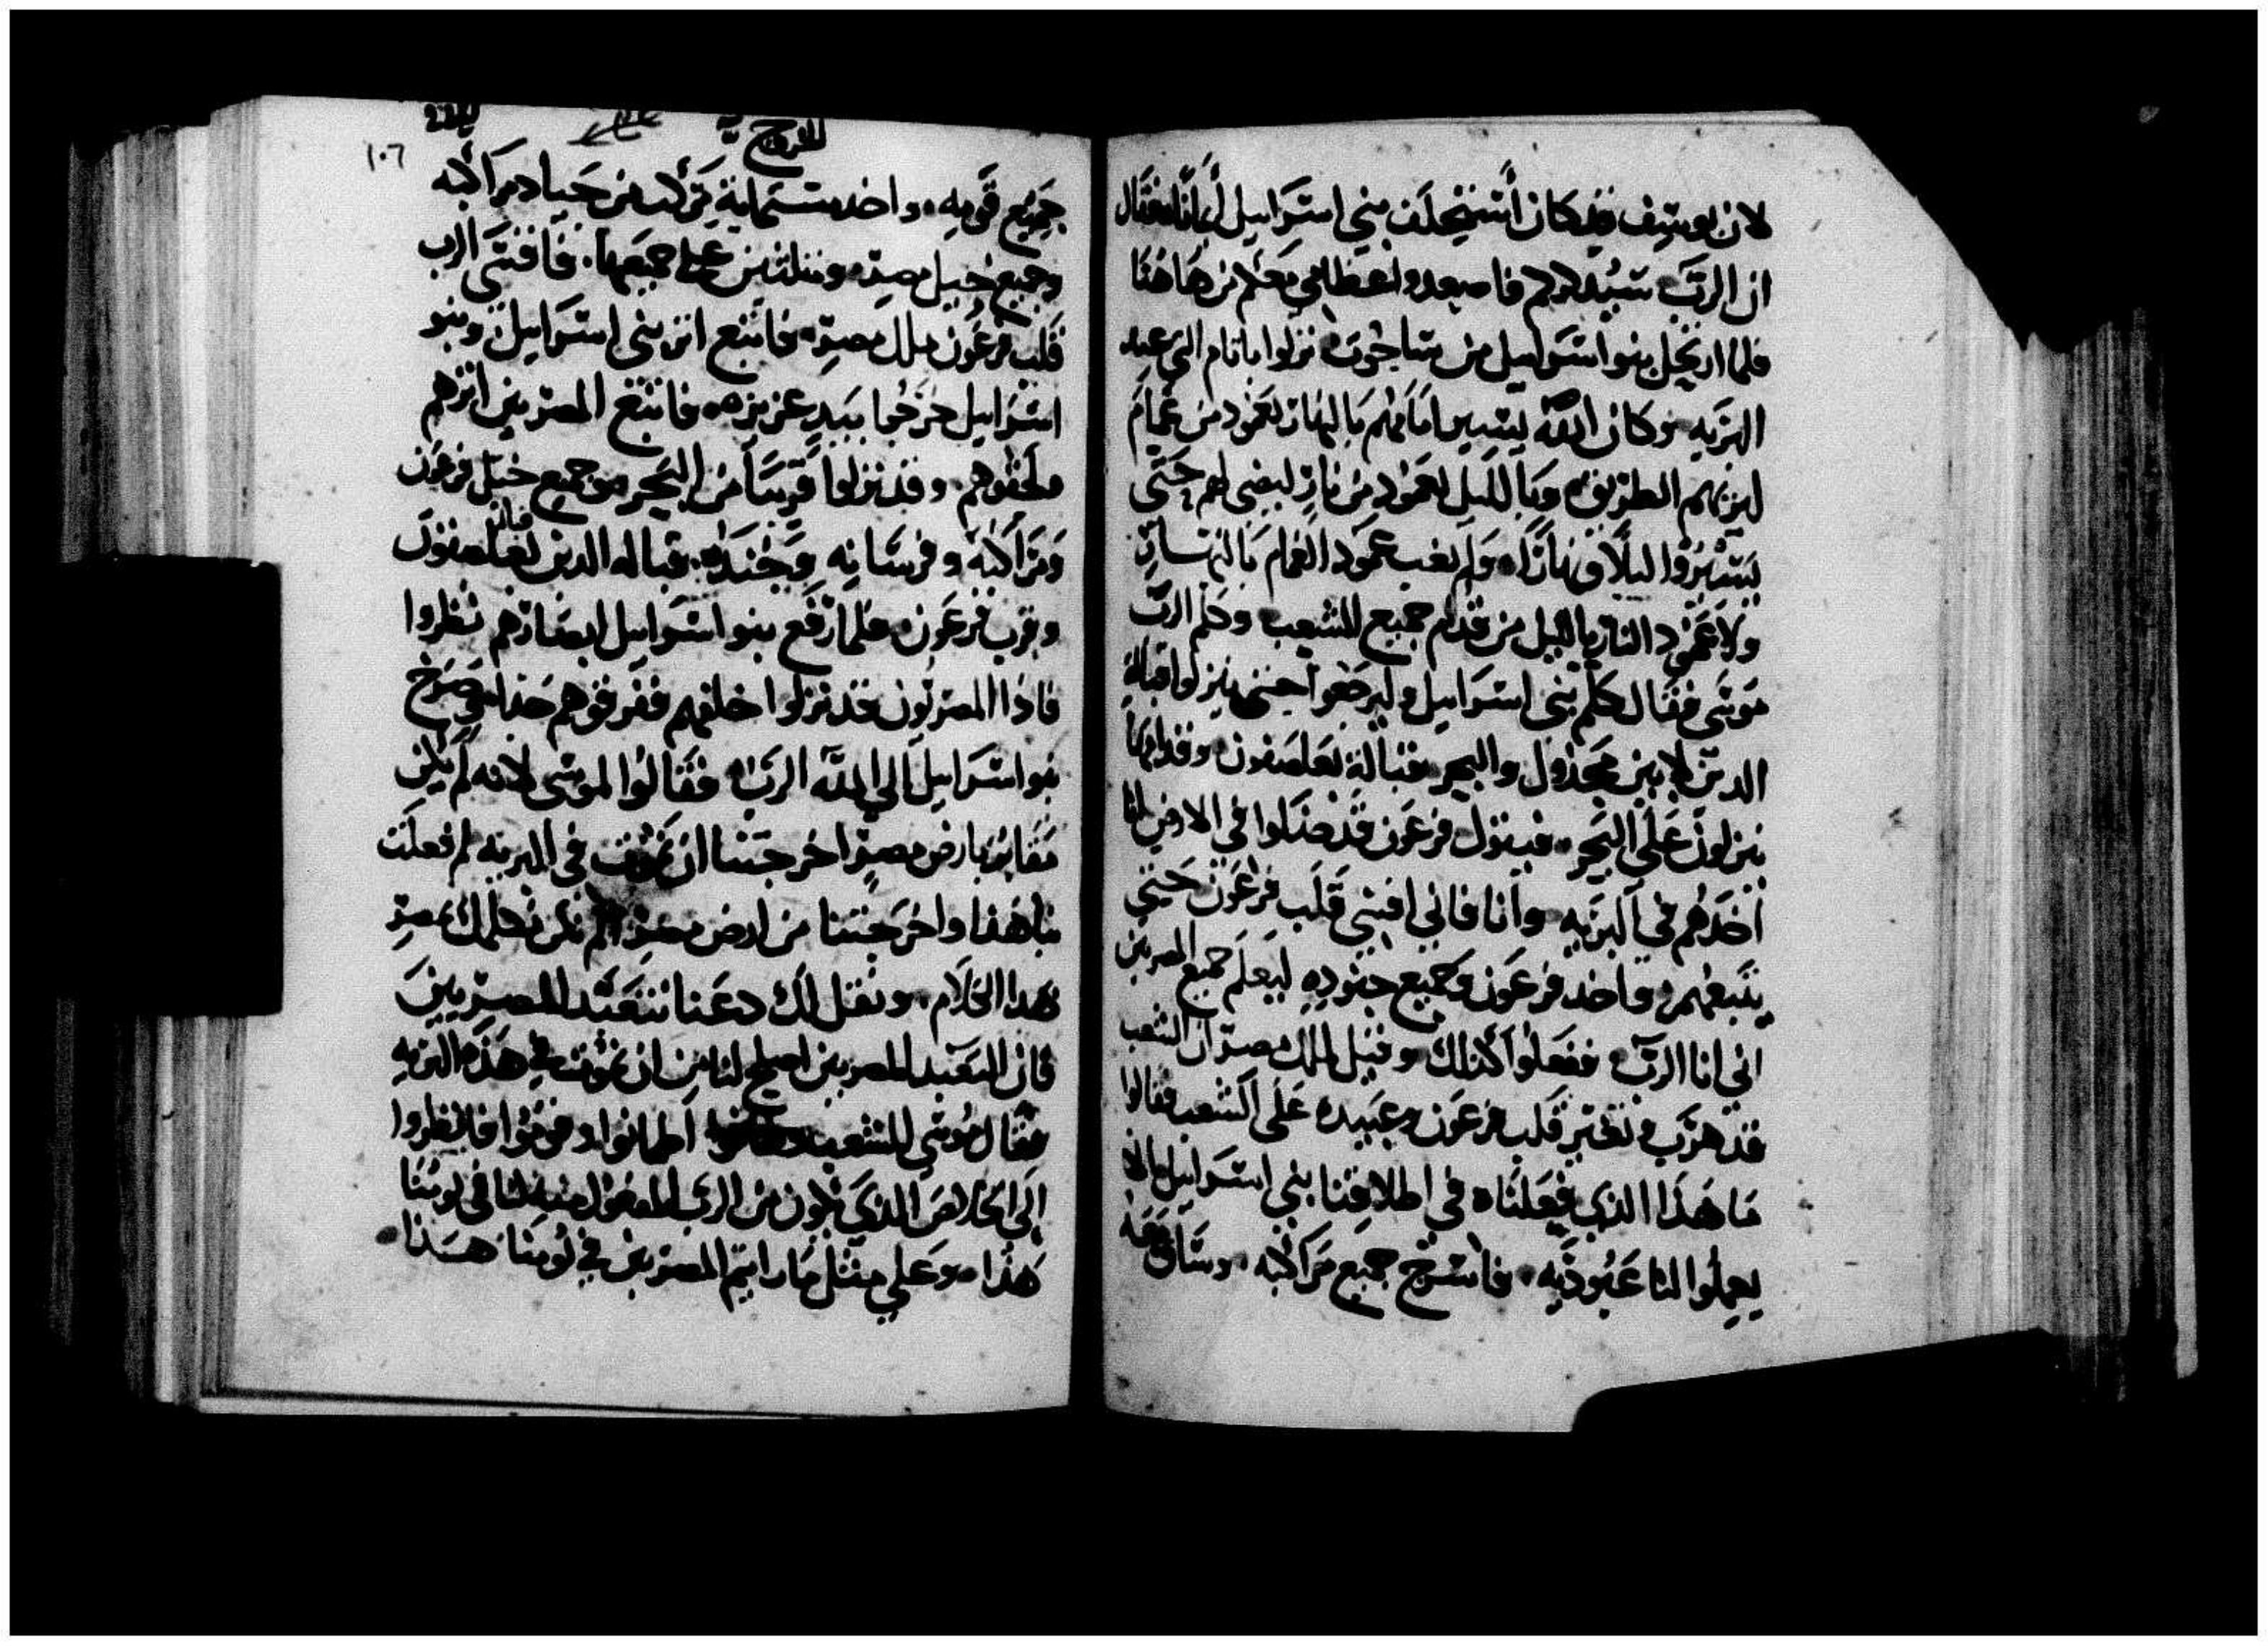 لان يوسف قد كان استحلف بني اسرايل ايمانا فقال
ان الرب سيدكركم فاصعدوا عظامي معكم من هاهنا
فلما ارتحل بنو اسرايل من ساحوت نزلوا باتام التي عند
البريه وكان الله يسير امامهم بالنهار بعمود من غمام
ليريهم الطريق وبالليل بعمود من نار ليضي لهم حتى
يسيروا ليلا ونهارا ولم يغب عمود الغمام بالنهار
ولا عمود النار بالليل من قدام جميع الشعب وكلم الرب
موسى فقال كلم بني اسرايل وليرجعوا حتى ينزلوا قبالة
الدير بين مجدول والبحر قبالة بعلصفون وقدامها
ينزلون على البحر فيقول فرعون قد ضلوا في الارض انا
اخدهم في البريه وانا فاني اقسي قلب فرعون حتى
يتبعهم واخد فرعون وجميع جنوده ليعلم جميع المصريين
اني انا الرب ففعلوا كذلك وقيل لملك مصر ان الشعب
قد هرب وتغير قلب فرعون وعبيده على الشعب فقالوا
ما هذا الذي فعلناه في اطلاقنا بني اسرايل الا
يعملوا لنا عبوديه فاسرج جميع مراكبه وساق معه
الخروج
١٠٦
جميع قومه واخد ستماية مركب من جياد مراكبه
وجميع خيل مصر ومثلثين على جميعها فاقسى الرب
قلب فرعون ملك مصر فاتبع اثر بني اسرايل وبنو
اسرايل خرجوا بيد عزيزه فاتبع المصريين اثرهم
ولحقوهم وقد نزلوا قريبا من البحر جميع خيل فرعون
ومراكبه وفرسانه وجنده قبالة الدير بعلصفون
وقرب فرعون فلما رفع بنو اسرايل ابصارهم نظروا
فاذا المصريون قد نزلوا خلفهم ففرقوهم جدا وصرخ
بنو اسرايل الي الله الرب فقالوا لموسى لانه لم يكن
مقابر بارض مصر اخرجتنا ان نموت في البريه لم فعلت
بنا هذا واخرجتنا من ارض مصر الم نكن نكلمك بمصر
بهدا الكلام ونقل لك دعنا نتعبد للمصريين
فان التعبد للمصريين اصلح لنا من ان نموت في هذه البريه
فقال موسى للشعب اطمانوا وقفوا فانظروا
الى الخلاص الذي يكون من الرب المفعول منه لنا في يومنا
هذا وعلي مثل ما رايتم المصريين في يومنا هذا